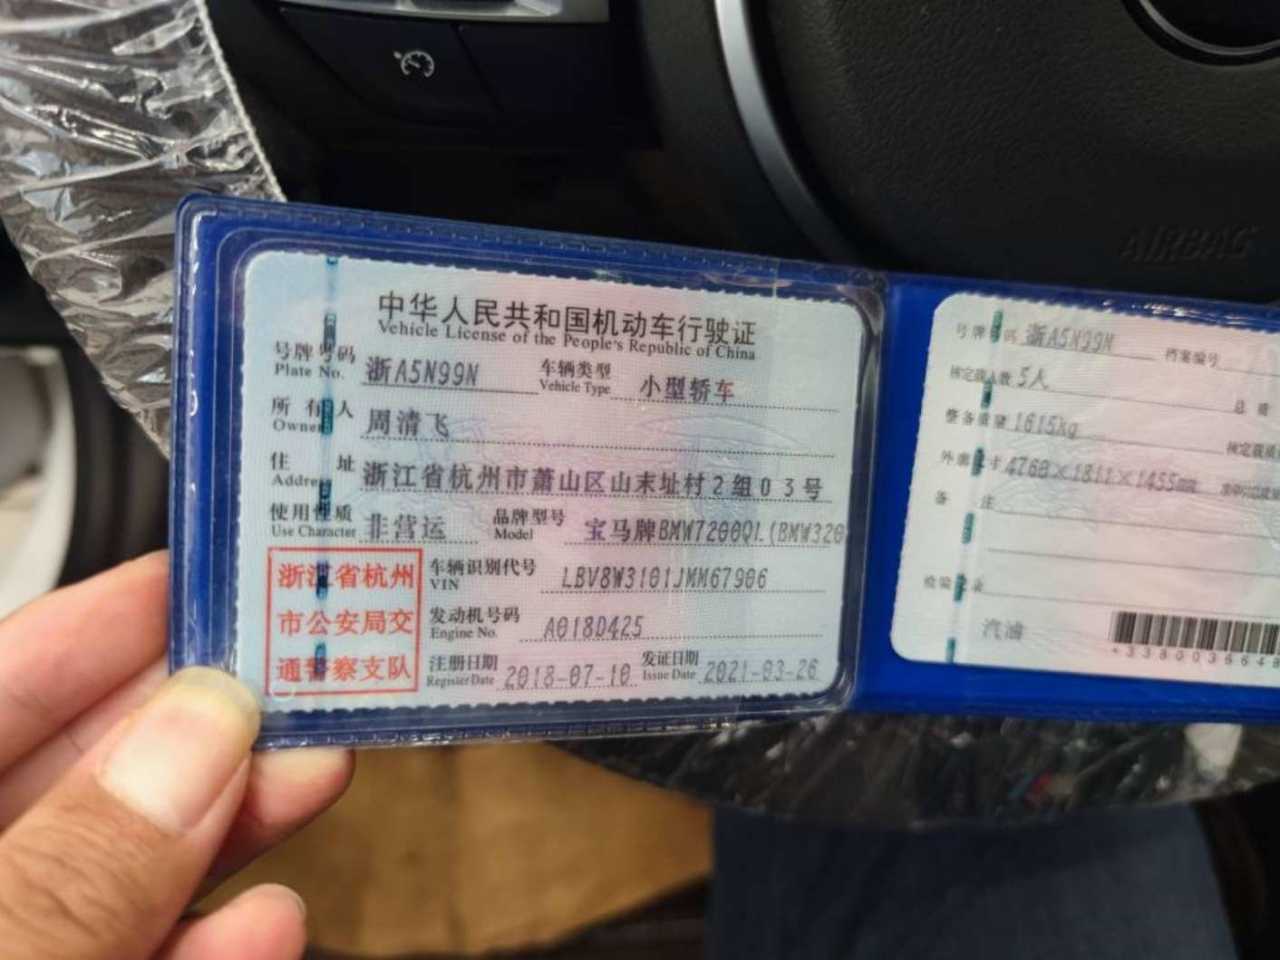 中华人民共和国机动车行驶证
Vehicle License of the People's Republic of China
号牌号码 浙A5N99N 车辆类型 小型轿车
Plate No. Vehicle Type
所有人 周清飞
Owner
住址 浙江省杭州市萧山区山末址村2组03号
Address
使用性质 非营运 品牌型号 宝马牌BMW7200QL(BMW320
Use Character Model
浙江省杭州
市公安局交
通警察支队
车辆识别代号 LBV8W3101JMM67906
VIN
发动机号码 A018D425
Engine No.
注册日期 2018-07-10 发证日期 2021-03-26
Register Date Issue Date
号牌号码 浙A5N99N 档案编号
核定载人数 5人 总质
整备质量 1615kg 核定载质
外廓尺寸 4760×1811×1455mm
备注
检验记录
汽油
AIRBAG